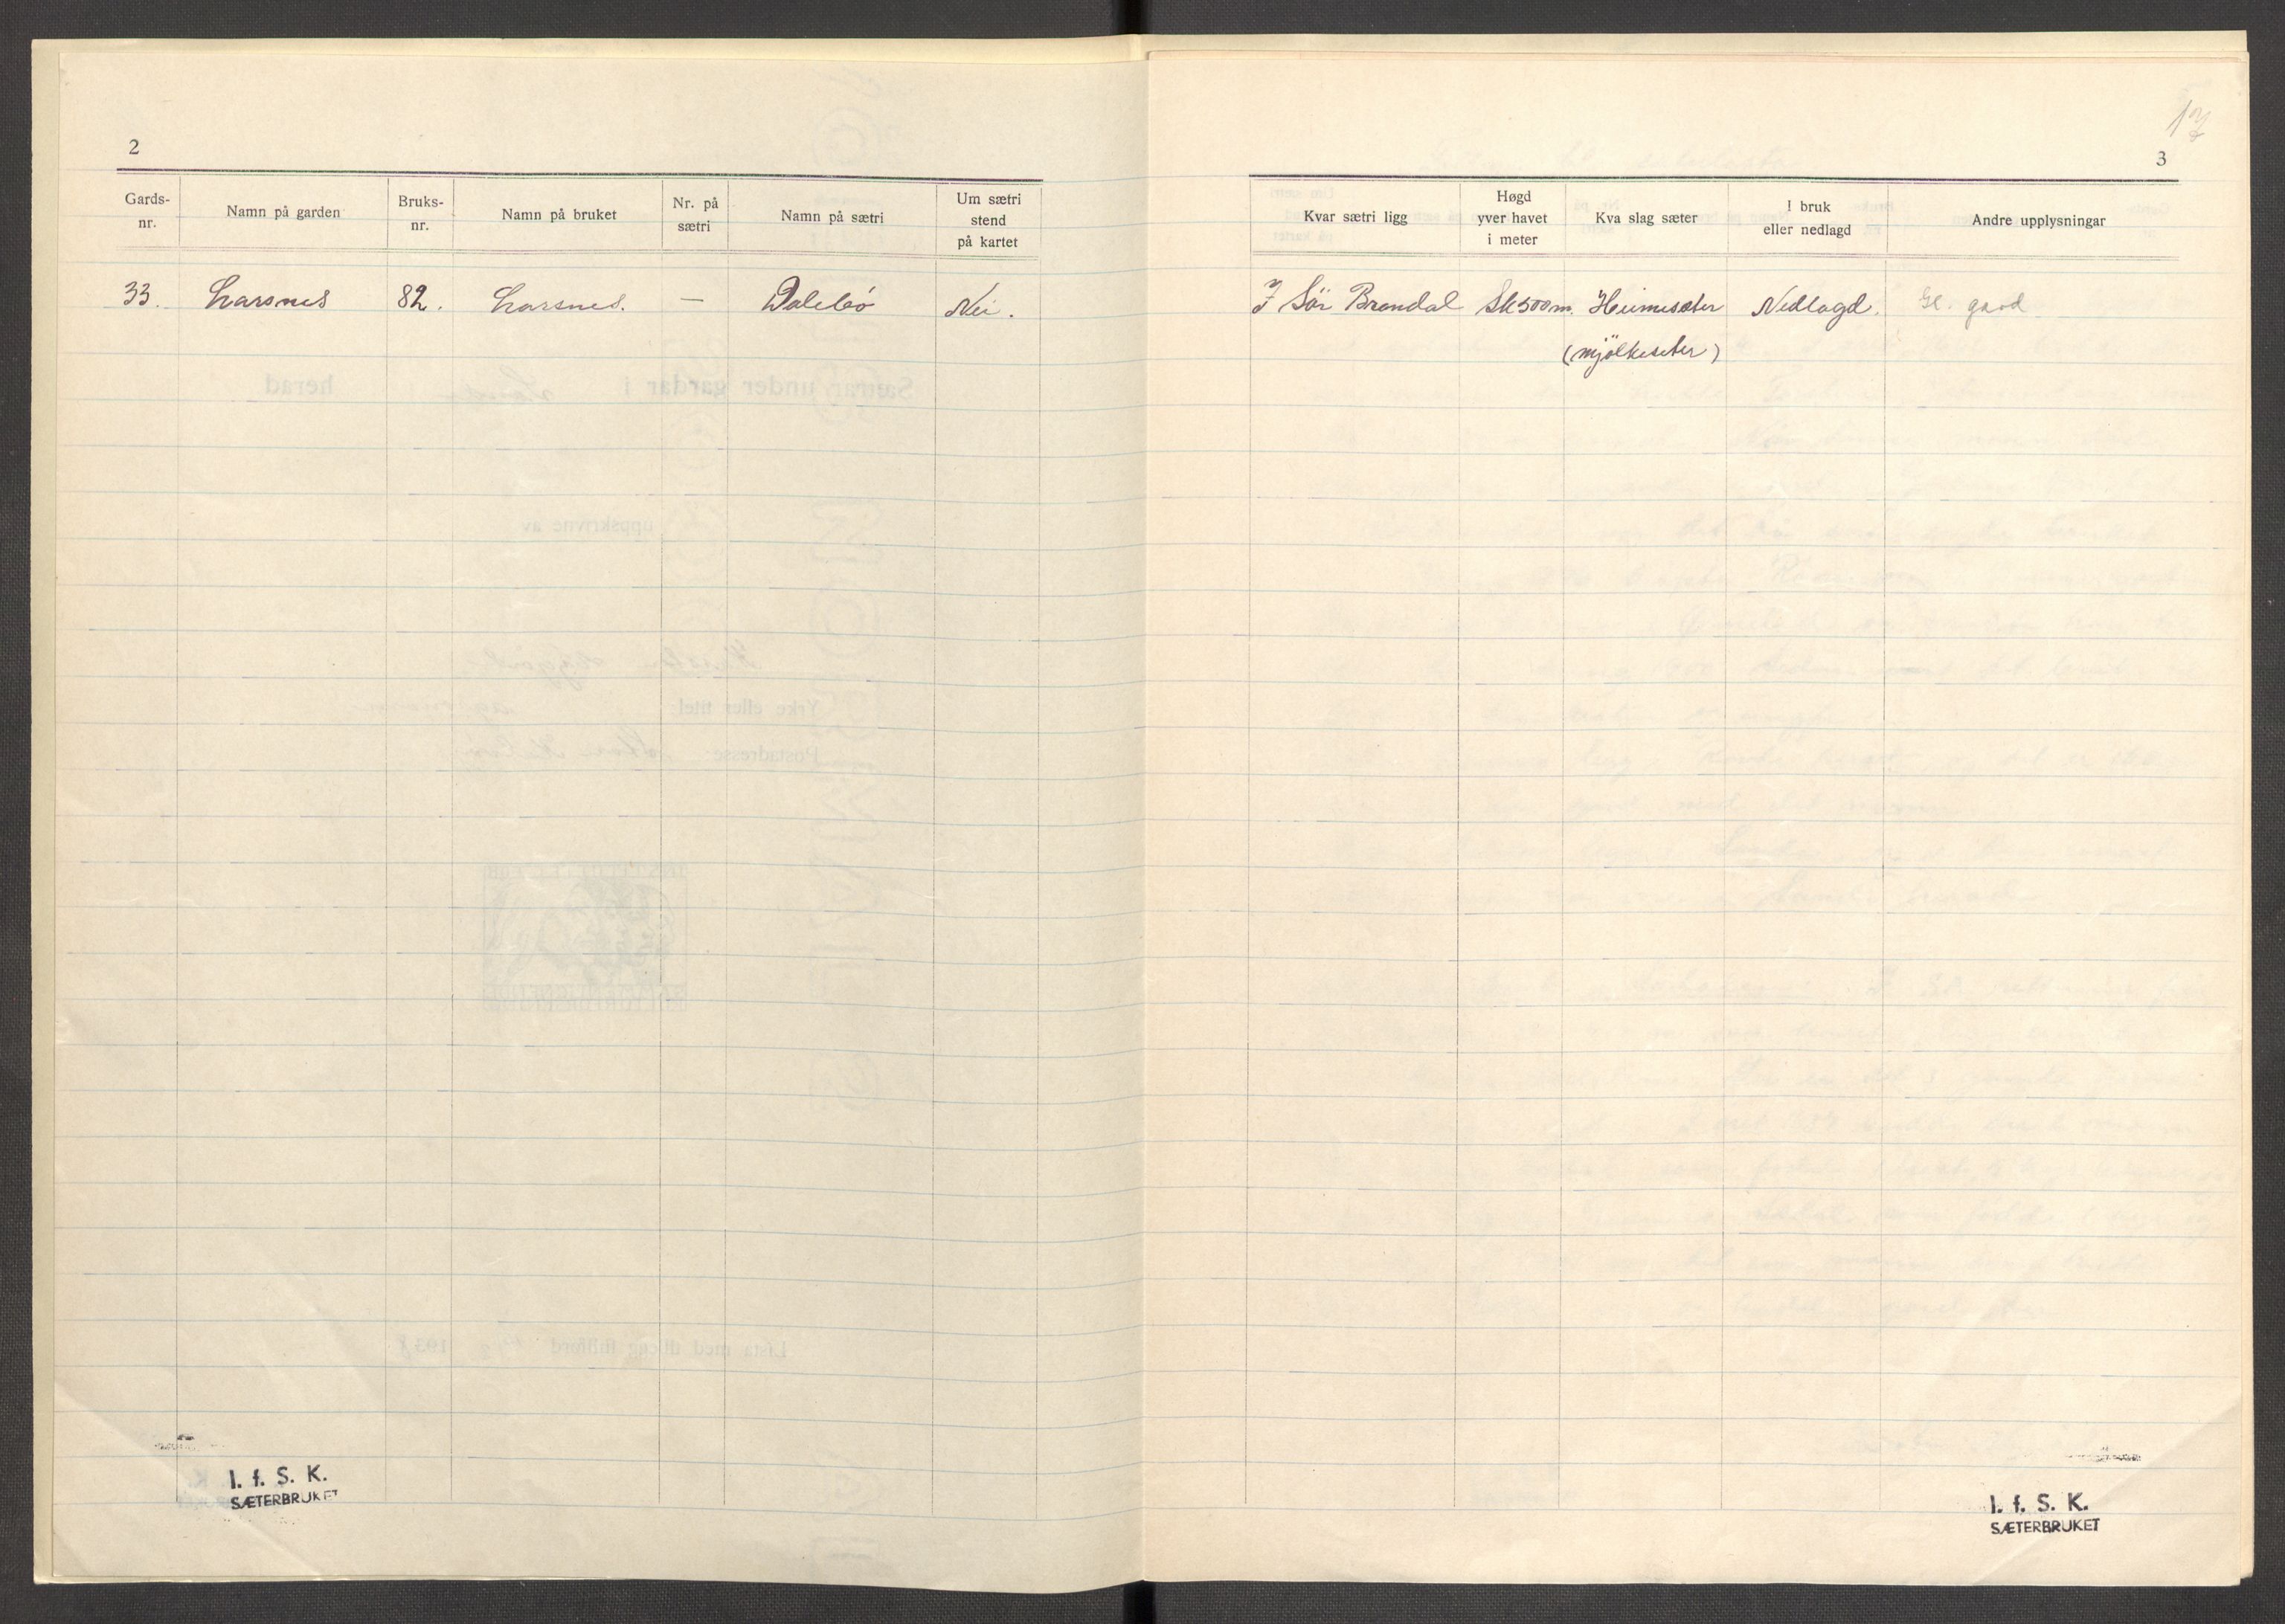 2
Gards-
nr.
Namn på garden
Bruks-
nr.
Namn på bruket
Nr. på
sætri
Namn på sætri
Um sætri
stend
på kartet
33. Larsnes 82. Larsnes. — Dalebø Nei.
I. f. S. K.
SÆTERBRUKET
17
3
Kvar sætri ligg
Høgd
yver havet
i meter
Kva slag sæter
I bruk
eller nedlagd
Andre upplysningar
I Sör Brandal 500m. Heimeseter Nedlagd. Gl. gard
(mjölkeseter)
I. f. S. K.
SÆTERBRUKET